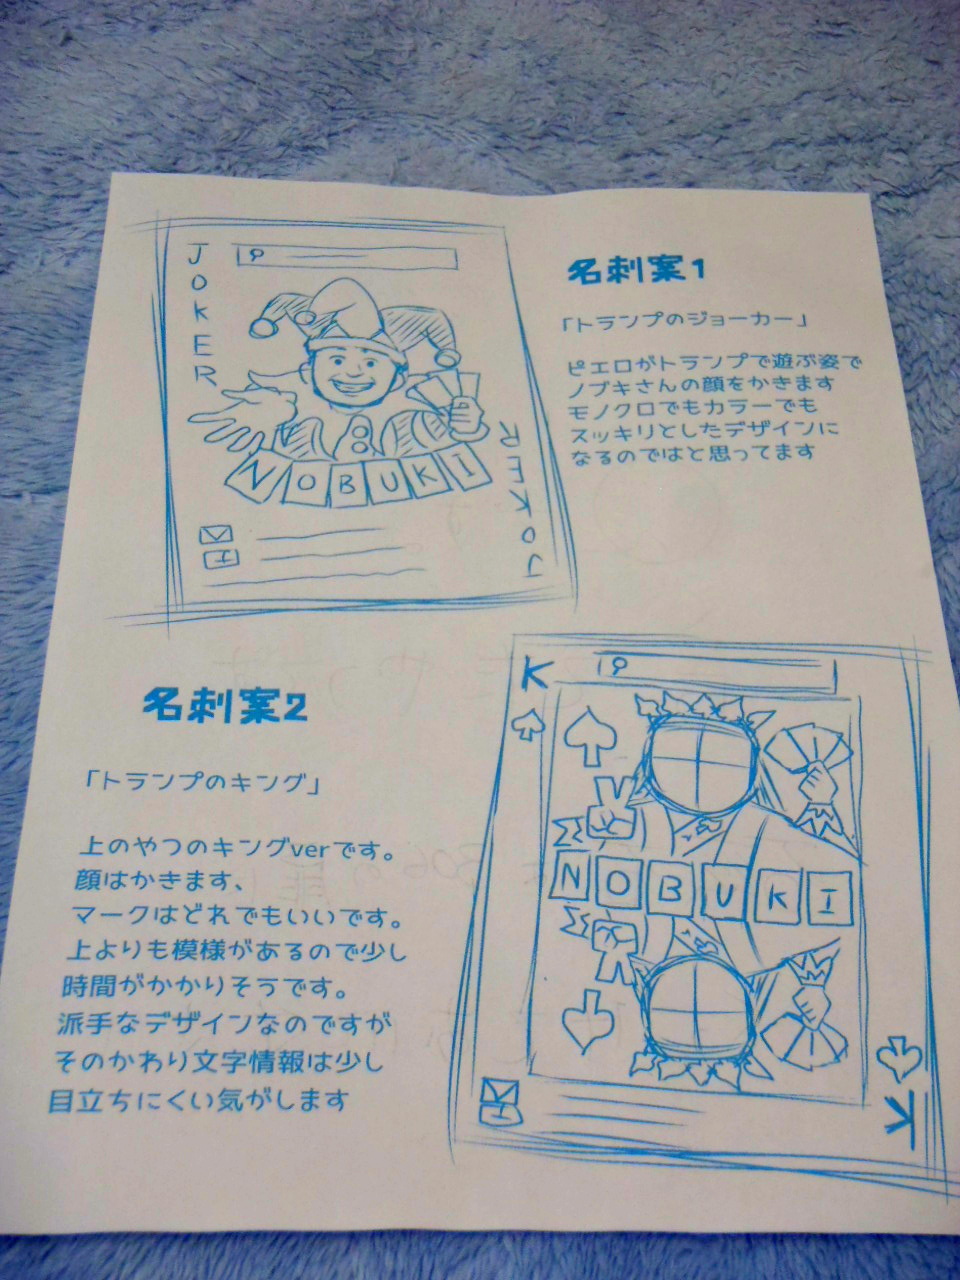 JOKER
NOBUKI
JOKER
名刺案1
「トランプのジョーカー」
ピエロがトランプで遊ぶ姿で
ノブキさんの顔をかきます
モノクロでもカラーでも
スッキリとしたデザインに
なるのではと思ってます
名刺案2
「トランプのキング」
上のやつのキングverです。
顔はかきます、
マークはどれでもいいです。
上よりも模様があるので少し
時間がかかりそうです。
派手なデザインなのですが
そのかわり文字情報は少し
目立ちにくい気がします
K
NOBUKI
K